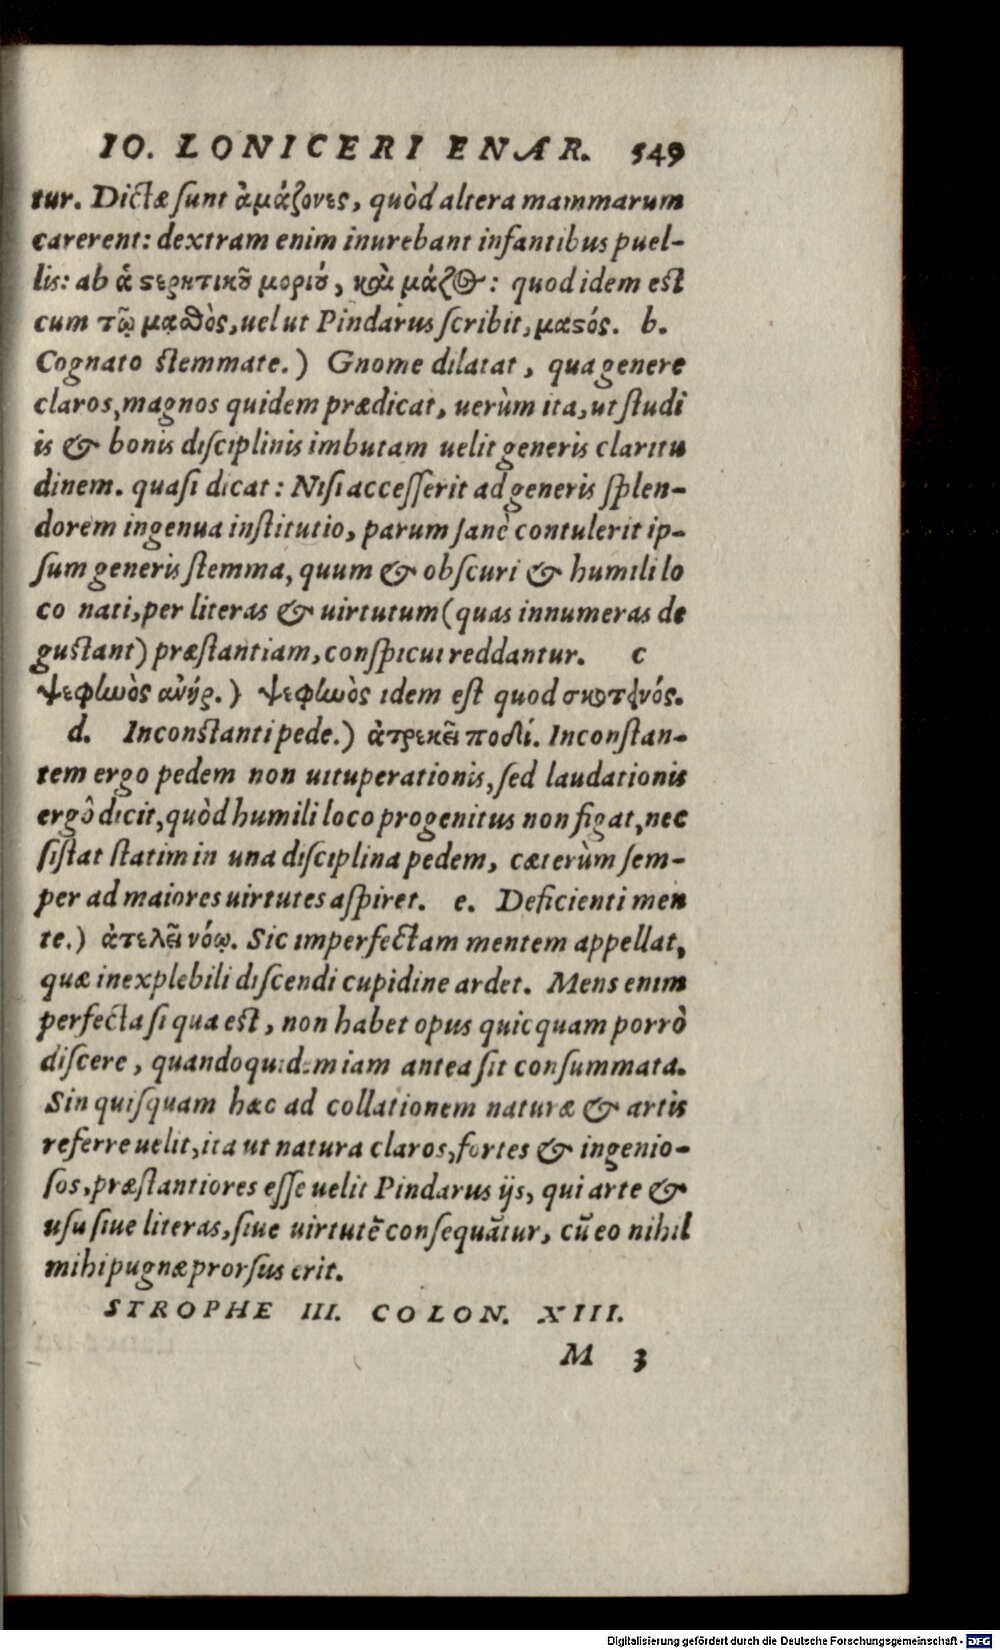 IO. LONICERI ENAR. 549
tur. Dictæ sunt ἀμάζονες, quòd altera mammarum
carerent: dextram enim inurebant infantibus puel-
lis: ab ἁ στερητικοῦ μορίου, καὶ μάζος: quod idem est
cum τῷ μαθὸς, uel ut Pindarus scribit, μαστός. b.
Cognato stemmate.) Gnome dilatat, qua genere
claros, magnos quidem prædicat, uerùm ita, ut studi
is & bonis disciplinis imbutam uelit generis claritu
dinem. quasi dicat: Nisi accesserit ad generis splen-
dorem ingenua institutio, parum sanè contulerit ip-
sum generis stemma, quum & obscuri & humili lo
co nati, per literas & uirtutum (quas innumeras de
gustant) præstantiam, conspicui reddantur. c
ψεφηνὸς ἀνήρ.) ψεφηνὸς idem est quod σκοτεινός.
d. Inconstanti pede.) ἀτρεκεῖ ποδί. Inconstan-
tem ergo pedem non uituperationis, sed laudationis
ergô dicit, quòd humili loco progenitus non figat, nec
sistat statim in una disciplina pedem, cæterùm sem-
per ad maiores uirtutes aspiret. e. Deficienti men
te.) ἀτελεῖ νόῳ. Sic imperfectam mentem appellat,
quæ inexplebili discendi cupidine ardet. Mens enim
perfecta si qua est, non habet opus quicquam porrò
discere, quandoquidem iam antea sit consummata.
Sin quisquam hæc ad collationem naturæ & artis
referre uelit, ita ut natura claros, fortes & ingenio-
sos, præstantiores esse uelit Pindarus ijs, qui arte &
usu siue literas, siue uirtutē consequātur, cū eo nihil
mihi pugnæ prorsus erit.
STROPHE III. COLON. XIII.
M 3
Digitalisierung gefördert durch die Deutsche Forschungsgemeinschaft - DFG